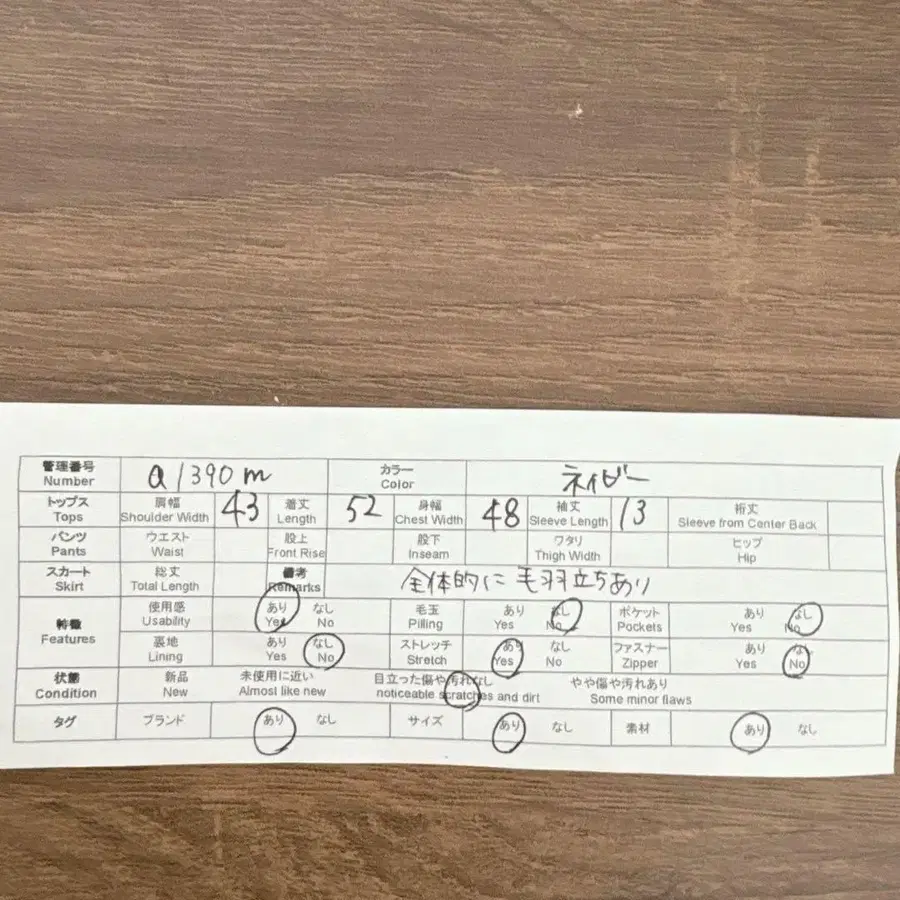 管理番号 Number a1390m カラー Color ネイビー
トップス Tops 肩幅 Shoulder Width 43 着丈 Length 52 身幅 Chest Width 48 袖丈 Sleeve Length 13 裄丈 Sleeve from Center Back
パンツ Pants ウエスト Waist 股上 Front Rise 股下 Inseam ワタリ Thigh Width ヒップ Hip
スカート Skirt 総丈 Total Length 備考 Remarks 全体的に毛羽立ちあり
特徴 Features 使用感 Usability あり Yes なし No 毛玉 Pilling あり Yes なし No ポケット Pockets あり Yes なし No
裏地 Lining あり Yes なし No ストレッチ Stretch あり Yes なし No ファスナー Zipper あり Yes なし No
状態 Condition 新品 New 未使用に近い Almost like new 目立った傷や汚れなし noticeable scratches and dirt やや傷や汚れあり Some minor flaws
タグ ブランド あり なし サイズ あり なし 素材 あり なし